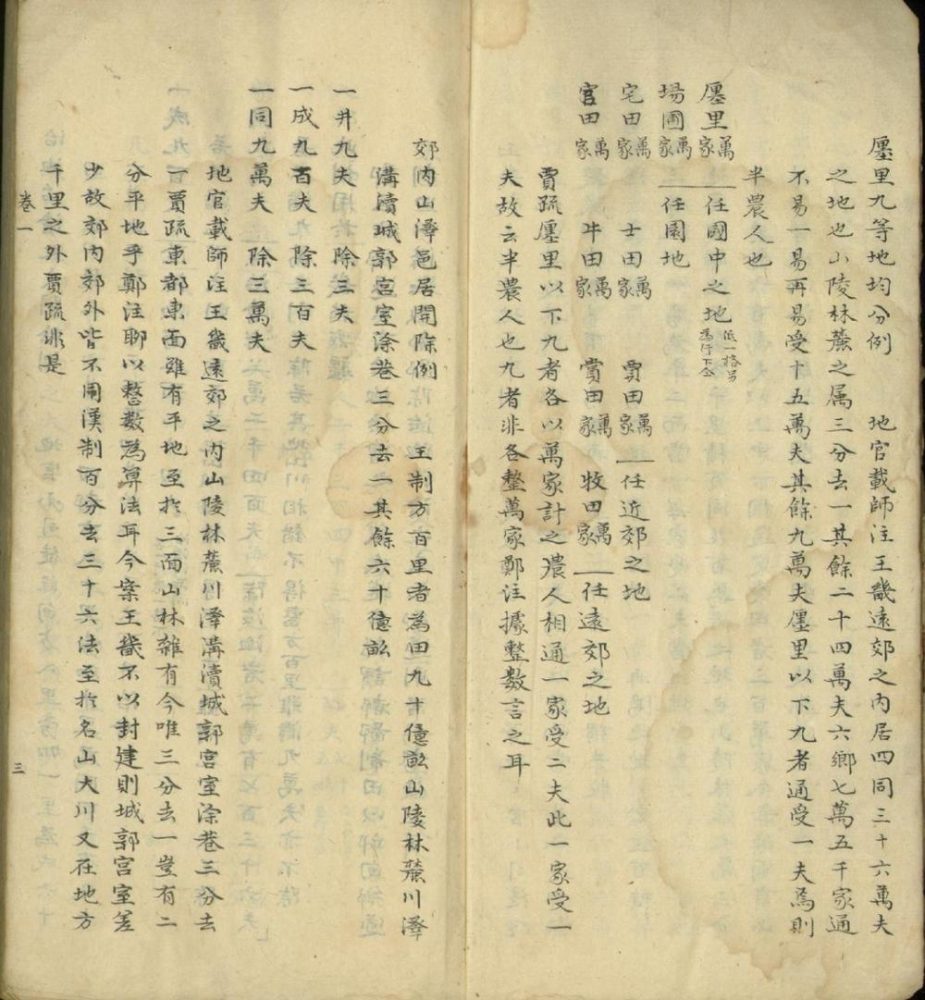 廛里九等地均分例 地官載師注王畿遠郊之內居四同三十六萬夫
之地也山陵林麓之属三分去一其餘二十四萬夫六鄉七萬五千家通
不易一易再易受十五萬夫其餘九萬夫廛里以下九者通受一夫焉則
半農人也
廛里萬家 任國中之地
場圃萬家 任園地
宅田萬家 士田萬家 賈田萬家 任近郊之地
官田萬家 牛田萬家 賞田萬家 牧田萬家 任遠郊之地
賈疏廛里以下九者各以萬家計之農人相通一家受二夫此一家受一
夫故云半農人也九者非各整萬家鄭注據整數言之耳
郊內山澤邑居開除例 王制方百里者為田九十億畝山陵林麓川澤
溝瀆城郭宮室涂巷三分去一其餘六十億畝
一井九夫 除三夫
一成九百夫 除三百夫
一同九萬夫 除三萬夫
地官載師注王畿遠郊之內山陵林麓川澤溝瀆城郭宮室涂巷三分去
一賈疏東都東面雖有平地至於三面山林雜有今唯三分去一豈有二
分平地乎鄭注聊以整數為算法耳今案王畿不以封建則城郭宮室差
少故郊內郊外皆不用漢制百分去三十六法至於名山大川又在地方
千里之外賈疏非是
卷一
三